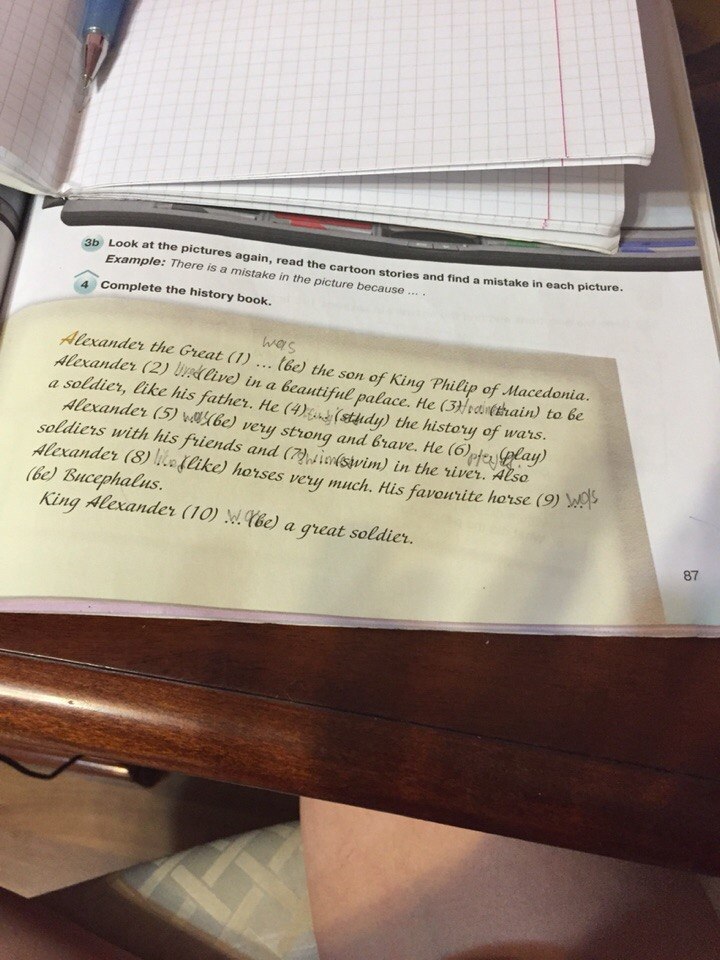 3b Look at the pictures again, read the cartoon stories and find a mistake in each picture.
Example: There is a mistake in the picture because ... .
4 Complete the history book.
was
Alexander the Great (1) ... (be) the son of King Philip of Macedonia.
Alexander (2) (live) in a beautiful palace. He (3) (train) to be
a soldier, like his father. He (4) (study) the history of wars.
Alexander (5) was (be) very strong and brave. He (6) (play)
soldiers with his friends and (7) (swim) in the river. Also
Alexander (8) (like) horses very much. His favourite horse (9) ... was
(be) Bucephalus.
King Alexander (10) ... was (be) a great soldier.
87